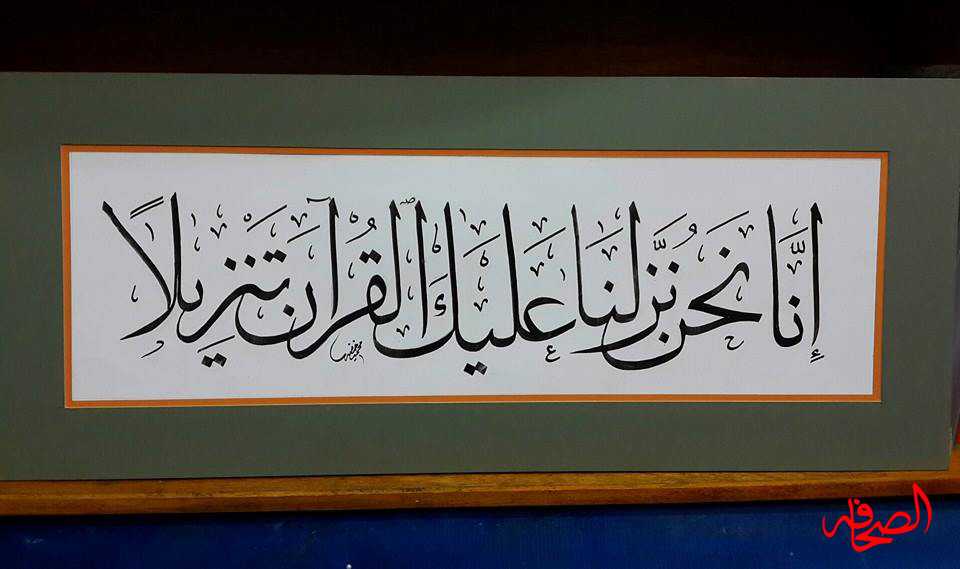 إِنَّا نَحْنُ نَزَّلْنَا عَلَيْكَ الْقُرْآنَ تَنْزِيلًا
الصحافة